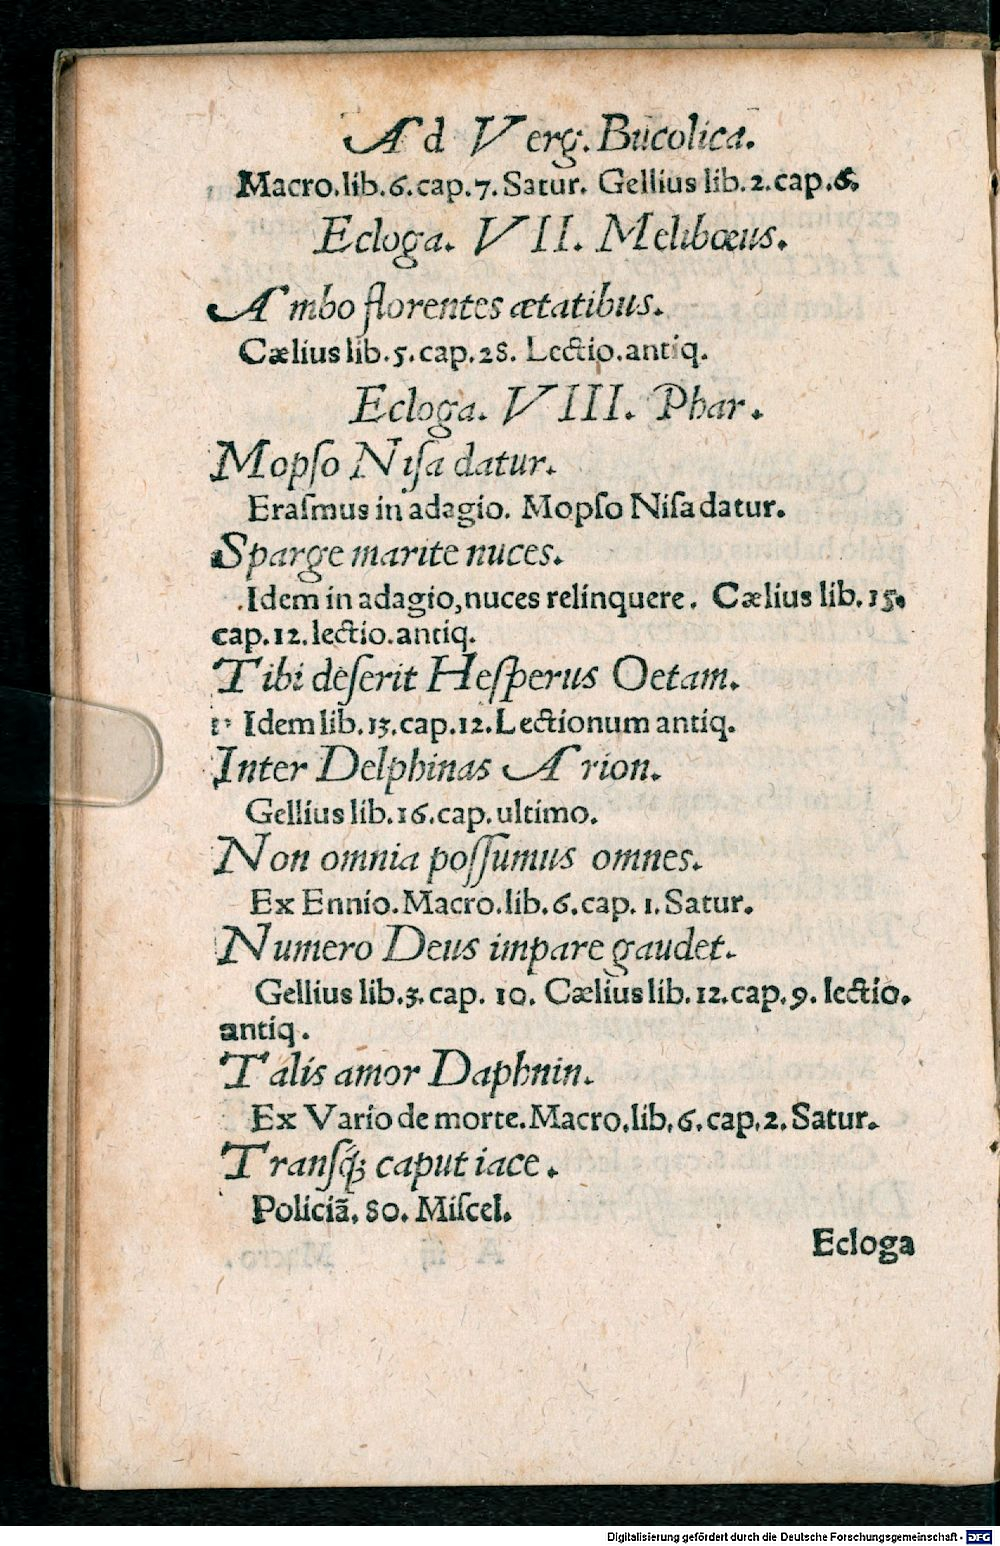 Ad Verg. Bucolica.
Macro.lib.6.cap.7.Satur. Gellius lib.2.cap.6.
Ecloga. VII. Melibœus.
Ambo florentes ætatibus.
Cælius lib.5.cap.28. Lectio.antiq.
Ecloga. VIII. Phar.
Mopſo Niſa datur.
Eraſmus in adagio. Mopſo Niſa datur.
Sparge marite nuces.
Idem in adagio,nuces relinquere. Cælius lib.15.
cap.12.lectio.antiq.
Tibi deſerit Heſperus Oetam.
Idem lib.13.cap.12.Lectionum antiq.
Inter Delphinas Arion.
Gellius lib.16.cap.ultimo.
Non omnia poſſumus omnes.
Ex Ennio.Macro.lib.6.cap.1.Satur.
Numero Deus impare gaudet.
Gellius lib.3.cap. 10. Cælius lib.12.cap.9. lectio.
antiq.
Talis amor Daphnin.
Ex Vario de morte.Macro.lib.6.cap.2.Satur.
Tranſq́; caput iace.
Policiã. 80. Miſcel.
Ecloga
Digitalisierung gefördert durch die Deutsche Forschungsgemeinschaft - DFG